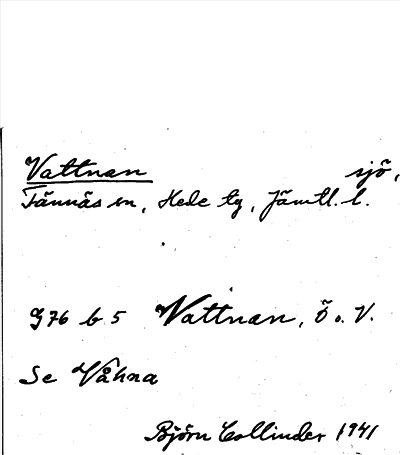 Vattnan sjö,
Tännäs sn, Hede tg, Jämtl. l.
G76 b 5 Vattnan, Ö o. V.
Se Våhna
Björn Collinder 1941